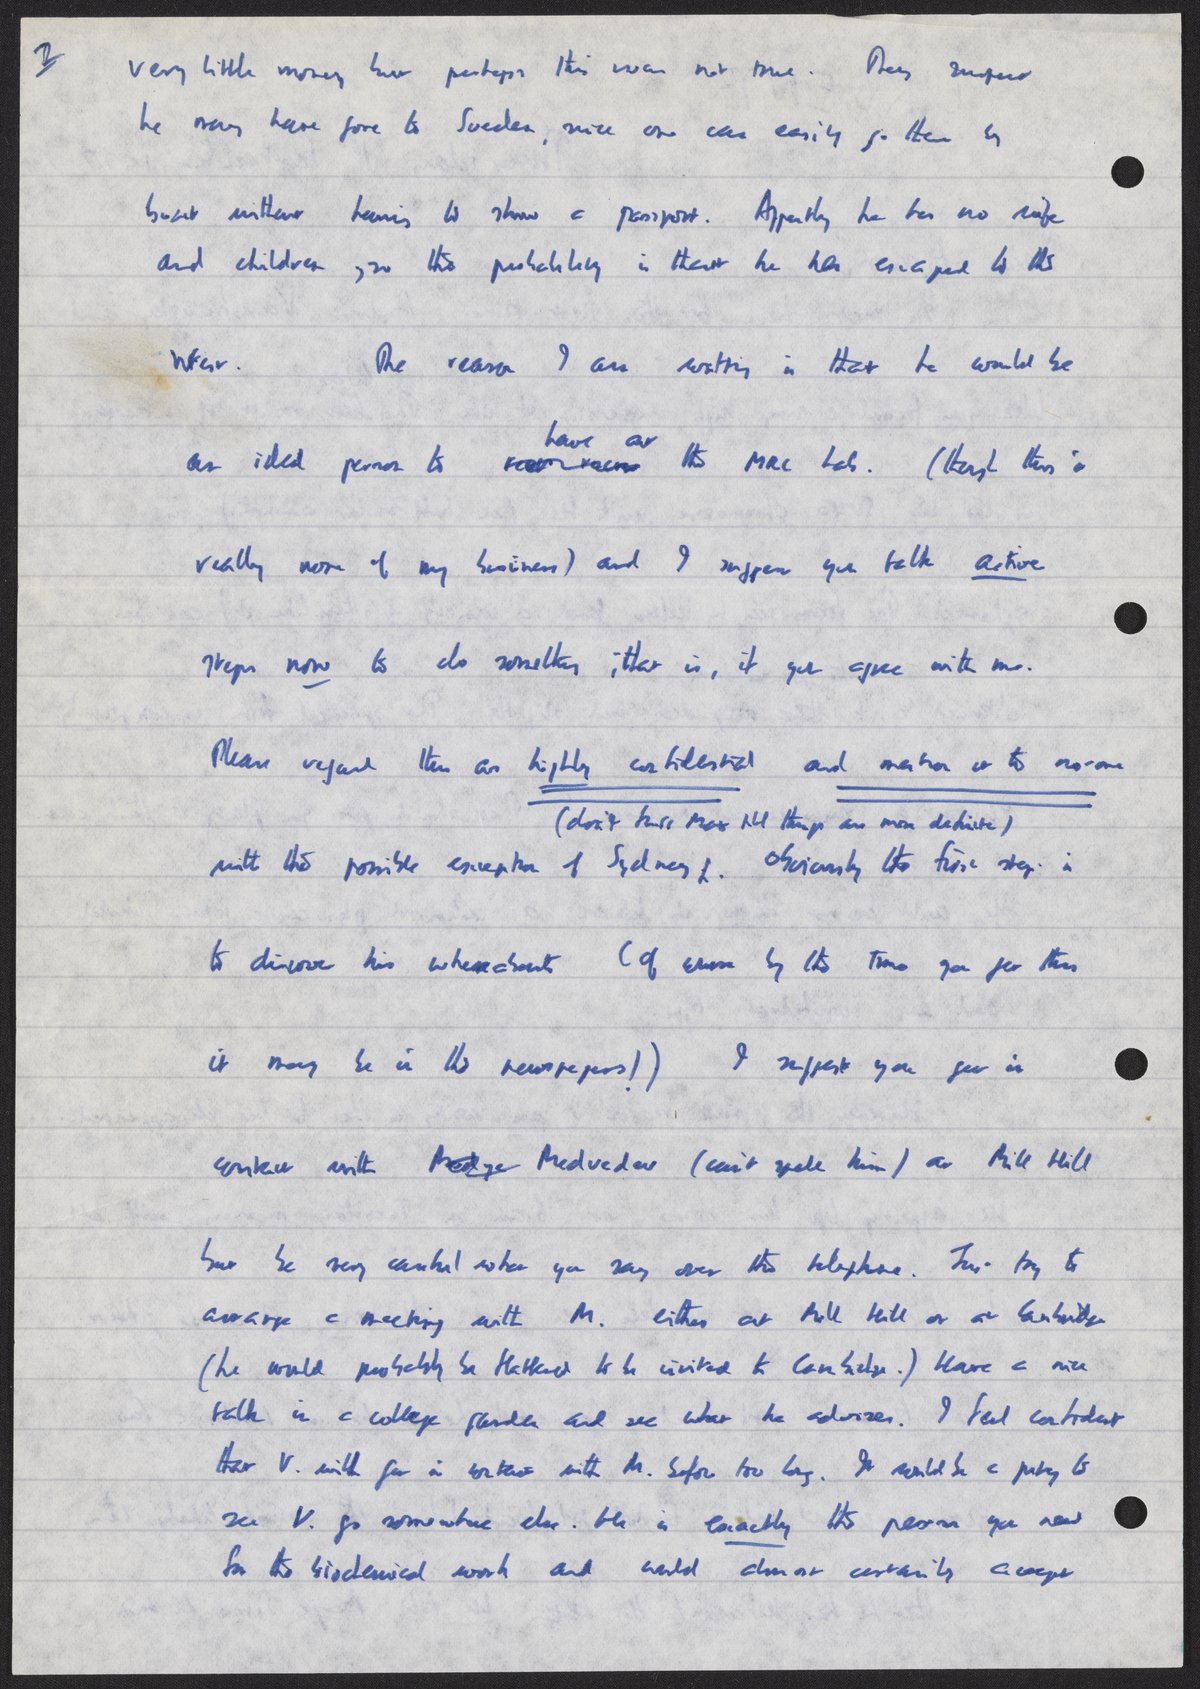 2
very little money but perhaps this was not true. They suspect
he may have gone to Sweden, since one can easily go there by
boat without having to show a passport. Appartly he has no wife
and children, so the probability is that he has escaped to the
West. The reason I am writing is that he would be
an ideal person to have at the MRC Lab. (though this is
really none of my business) and I suggest you talk active
steps now to do something; that is, if you agree with me.
Please regard this as highly confidential and mention it to no-one
(don't tell Max till things are more definite)
with the possible exception of Sydney. Obviously the first step is
to discover his whereabouts (Of course by the time you get this
it may be in the newspapers!) I suggest you get in
contact with Medvedev (can't spell him) at Mill Hill
but be very careful what you say over the telephone. Just try to
arrange a meeting with M. either at Mill Hill or at Cambridge
(he would probably be flattered to be invited to Cambridge.) Have a nice
talk in a college garden and see what he advises. I feel confident
that V. will get in contact with M. before too long. It would be a pity to
see V. go somewhere else. He is exactly the person you need
for the biochemical work and would almost certainly accept